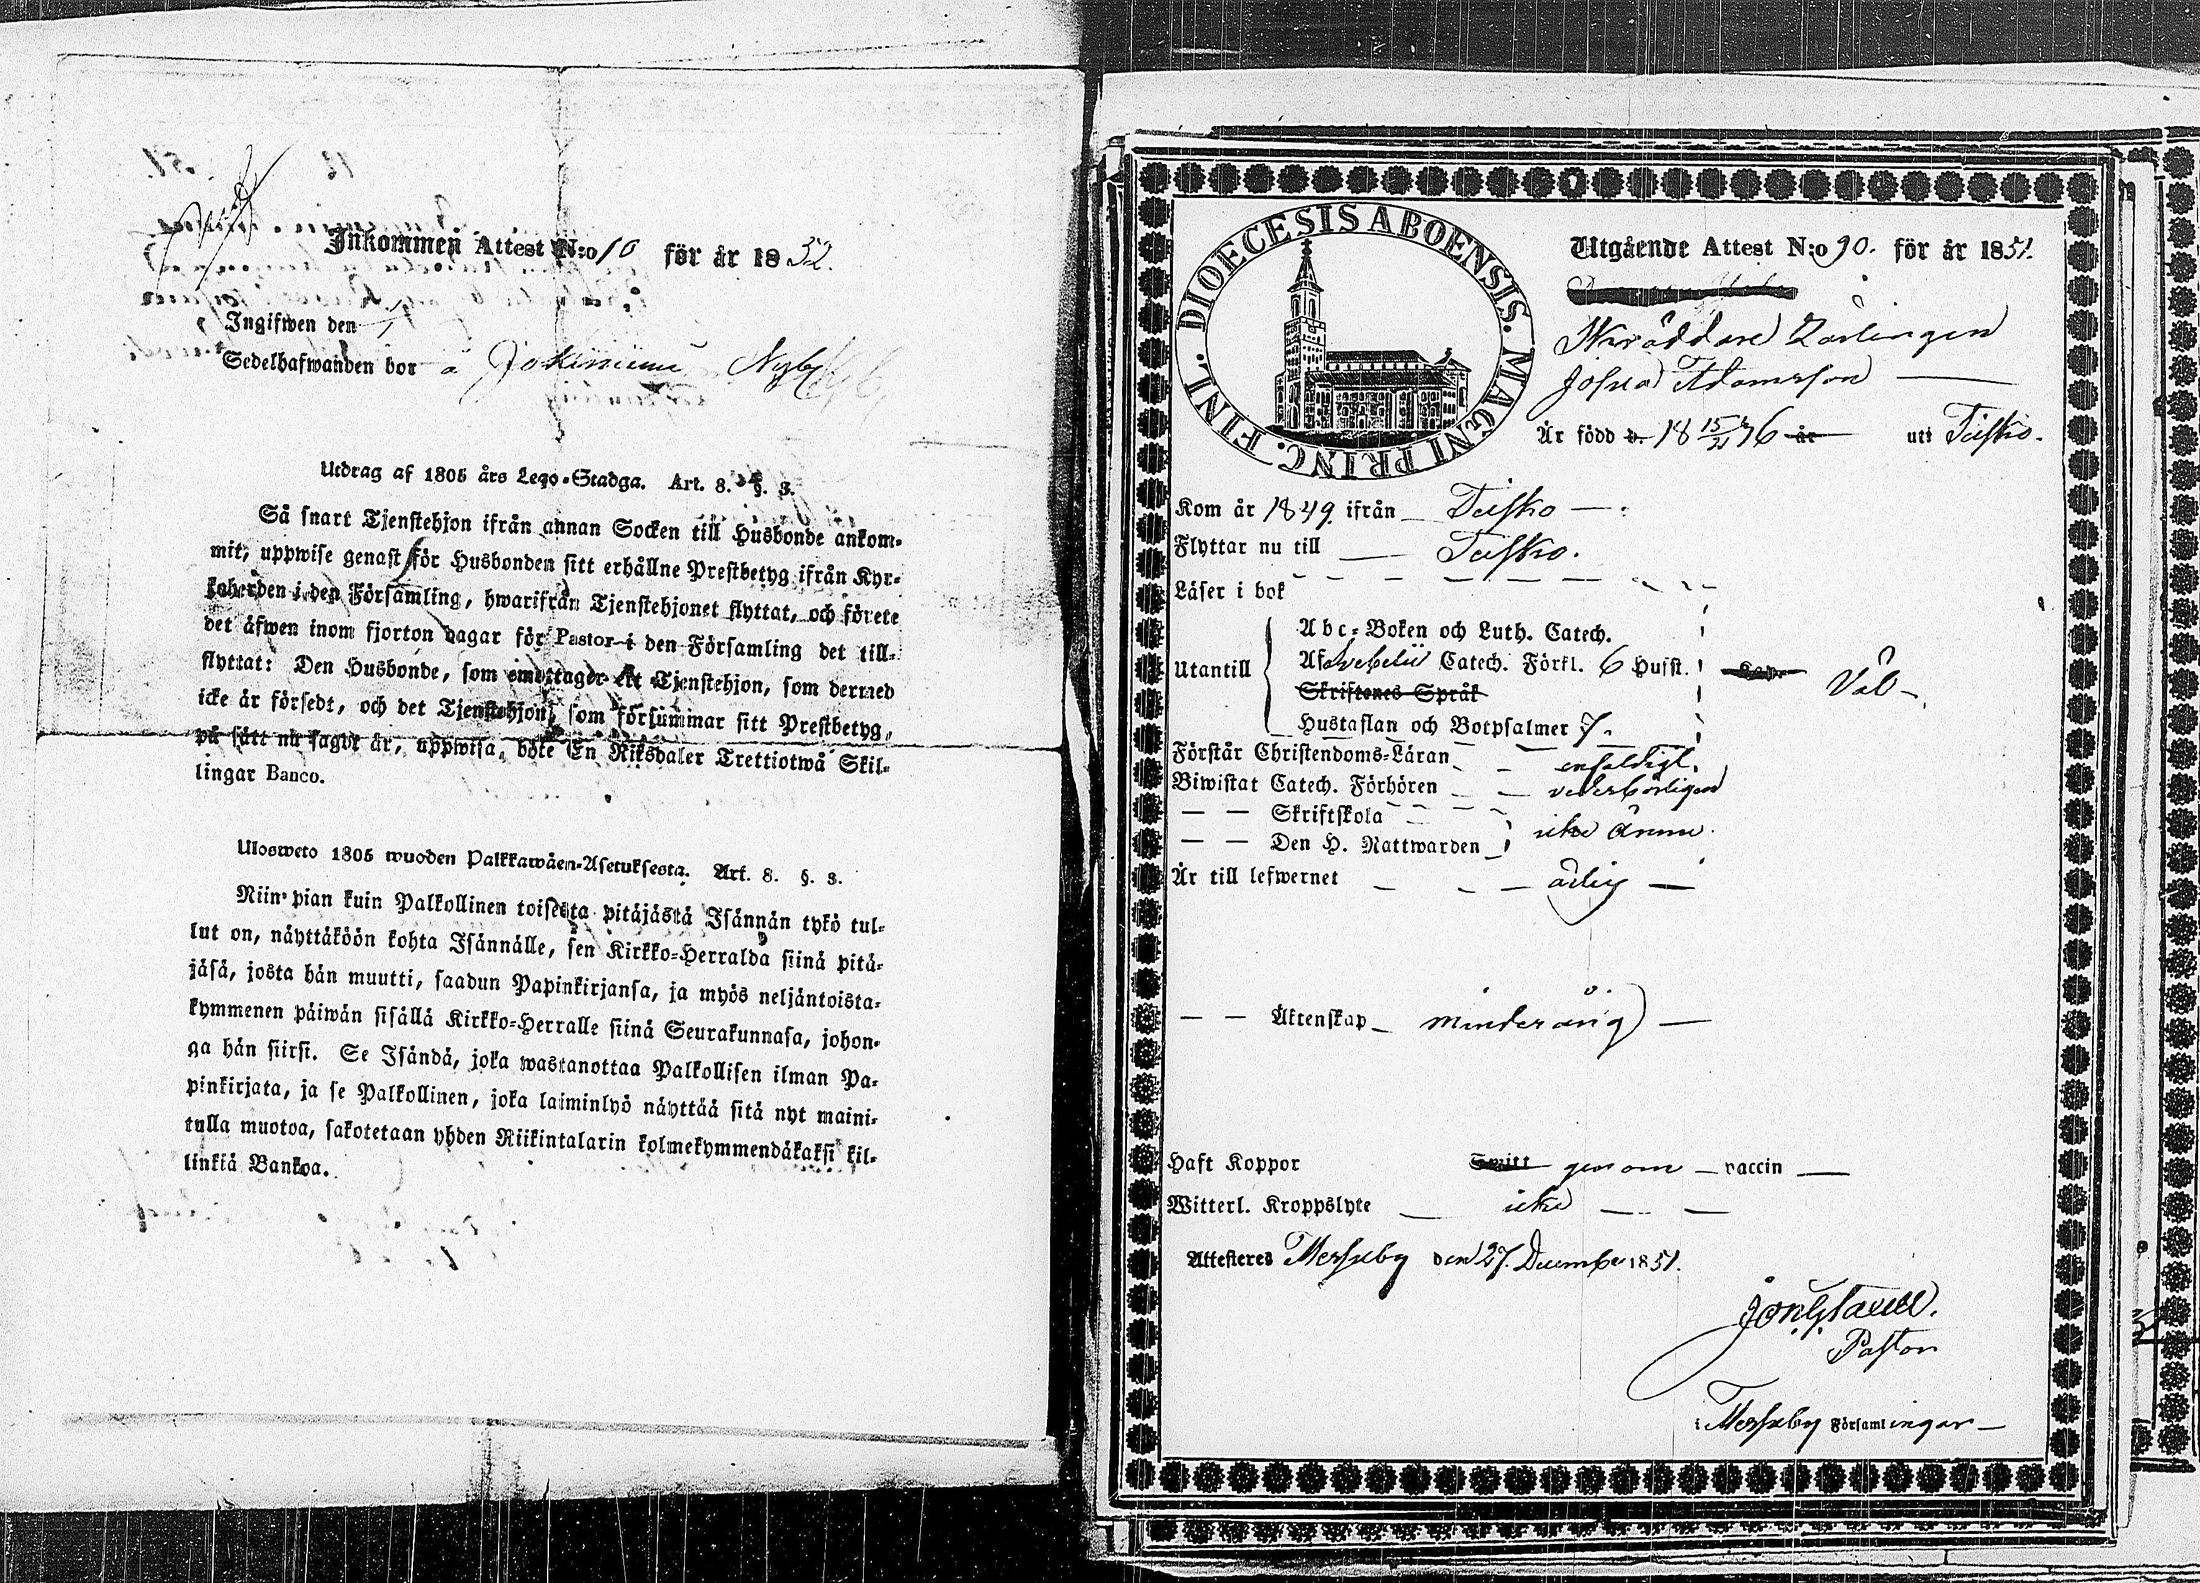 Inkommen Attest N:o 10 för år 1852.
Ingifwen den
Sedelhafwanden bor å Jokiniemi Nyby
Utdrag af 1805 års Lego-Stadga. Art. 8. §. 3.
Så snart Tjenstehjon ifrån annan Socken till Husbonde ankom-
mit, uppwise genast för Husbonden sitt erhållne Prestbetyg ifrån Kyr-
koherden i den Församling, hwarifrån Tjenstehjonet flyttat, och förete
det äfwen inom fjorton dagar för Pastor i den Församling det till-
flyttat: Den Husbonde, som emottager ett Tjenstehjon, som dermed
icke är försedt, och det Tjenstehjon, som försummar sitt Prestbetyg,
på sätt nu sagdt är, uppwisa, böte En Riksdaler Trettiotwå Skil-
lingar Banco.
Ulosweto 1805 wuoden Palkkawäen-Asetuksesta. Art. 8. §. 3.
Niin pian kuin Palkollinen toisesta pitäjästä Isännän tykö tul-
lut on, näyttäköön kohta Isännälle, sen Kirkko-Herralda siinä pitä-
jäsä, josta hän muutti, saadun Papinkirjansa, ja myös neljäntoista-
kymmenen päiwän sisällä Kirkko-Herralle siinä Seurakunnasa, johon-
ga hän siirsi. Se Isändä, joka wastanottaa Palkollisen ilman Pa-
pinkirjata, ja se Palkollinen, joka laiminlyö näyttää sitä nyt maini-
tulla muotoa, sakotetaan yhden Riikintalarin kolmekymmendäkaksi kil-
linkiä Bankoa.
DIOECESIS ABOENSIS. MAGNI PRINC. FINL.
Utgående Attest N:o 90. för år 1851.
Skräddare Lärlingen
Josua Adamsson
Är född d. 18 15/21 36 år uti Tusko.
Kom år 1849. ifrån Tusko
Flyttar nu till Tusko.
Läser i bok
Abc-Boken och Luth. Catech.
Utantill Af Svebelii Catech. Förkl. 6 Husst. Kap. Väl
Skriftenes Språk
Hustaflan och Botpsalmer 7.
Förstår Christendoms-Läran enfaldigt.
Biwistat Catech. Förhören vederbörligen
Skriftskola
Den H. Nattwarden icke ännu.
Är till lefwernet ärlig
Äktenskap minderårig
Haft Koppor genom vaccin
Witterl. Kroppslyte icke
Attesteres Messuby den 27. December 1851.
Pastor
i Messuby Församlingar